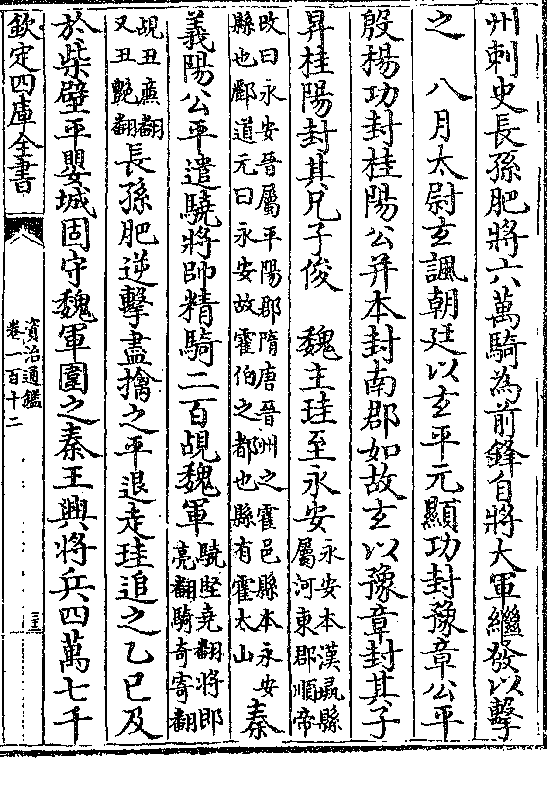 州刺史長孫肥將六萬騎為前鋒自將大軍繼發以擊
之　八月太尉玄諷朝廷以玄平元顯功封豫章公平
殷楊功封桂陽公并本封南郡如故玄以豫章封其子
昇桂陽封其兄子俊　魏主珪至永安永安本漢彘縣屬河東郡順帝
改曰永安晉屬平陽郡隋唐晉州之霍邑縣本永安縣也酈道元曰永安故霍伯之都也縣有霍太山　秦
義陽公平遣驍將帥精騎二百覘魏軍驍堅堯翻將即亮翻騎奇寄翻
覘丑亷翻又丑艷翻長孫肥逆擊盡擒之平退走珪追之乙巳及
於柴壁平嬰城固守魏軍圍之秦王興將兵四萬七千
欽定四庫全書
資治通鑑
卷一百十二